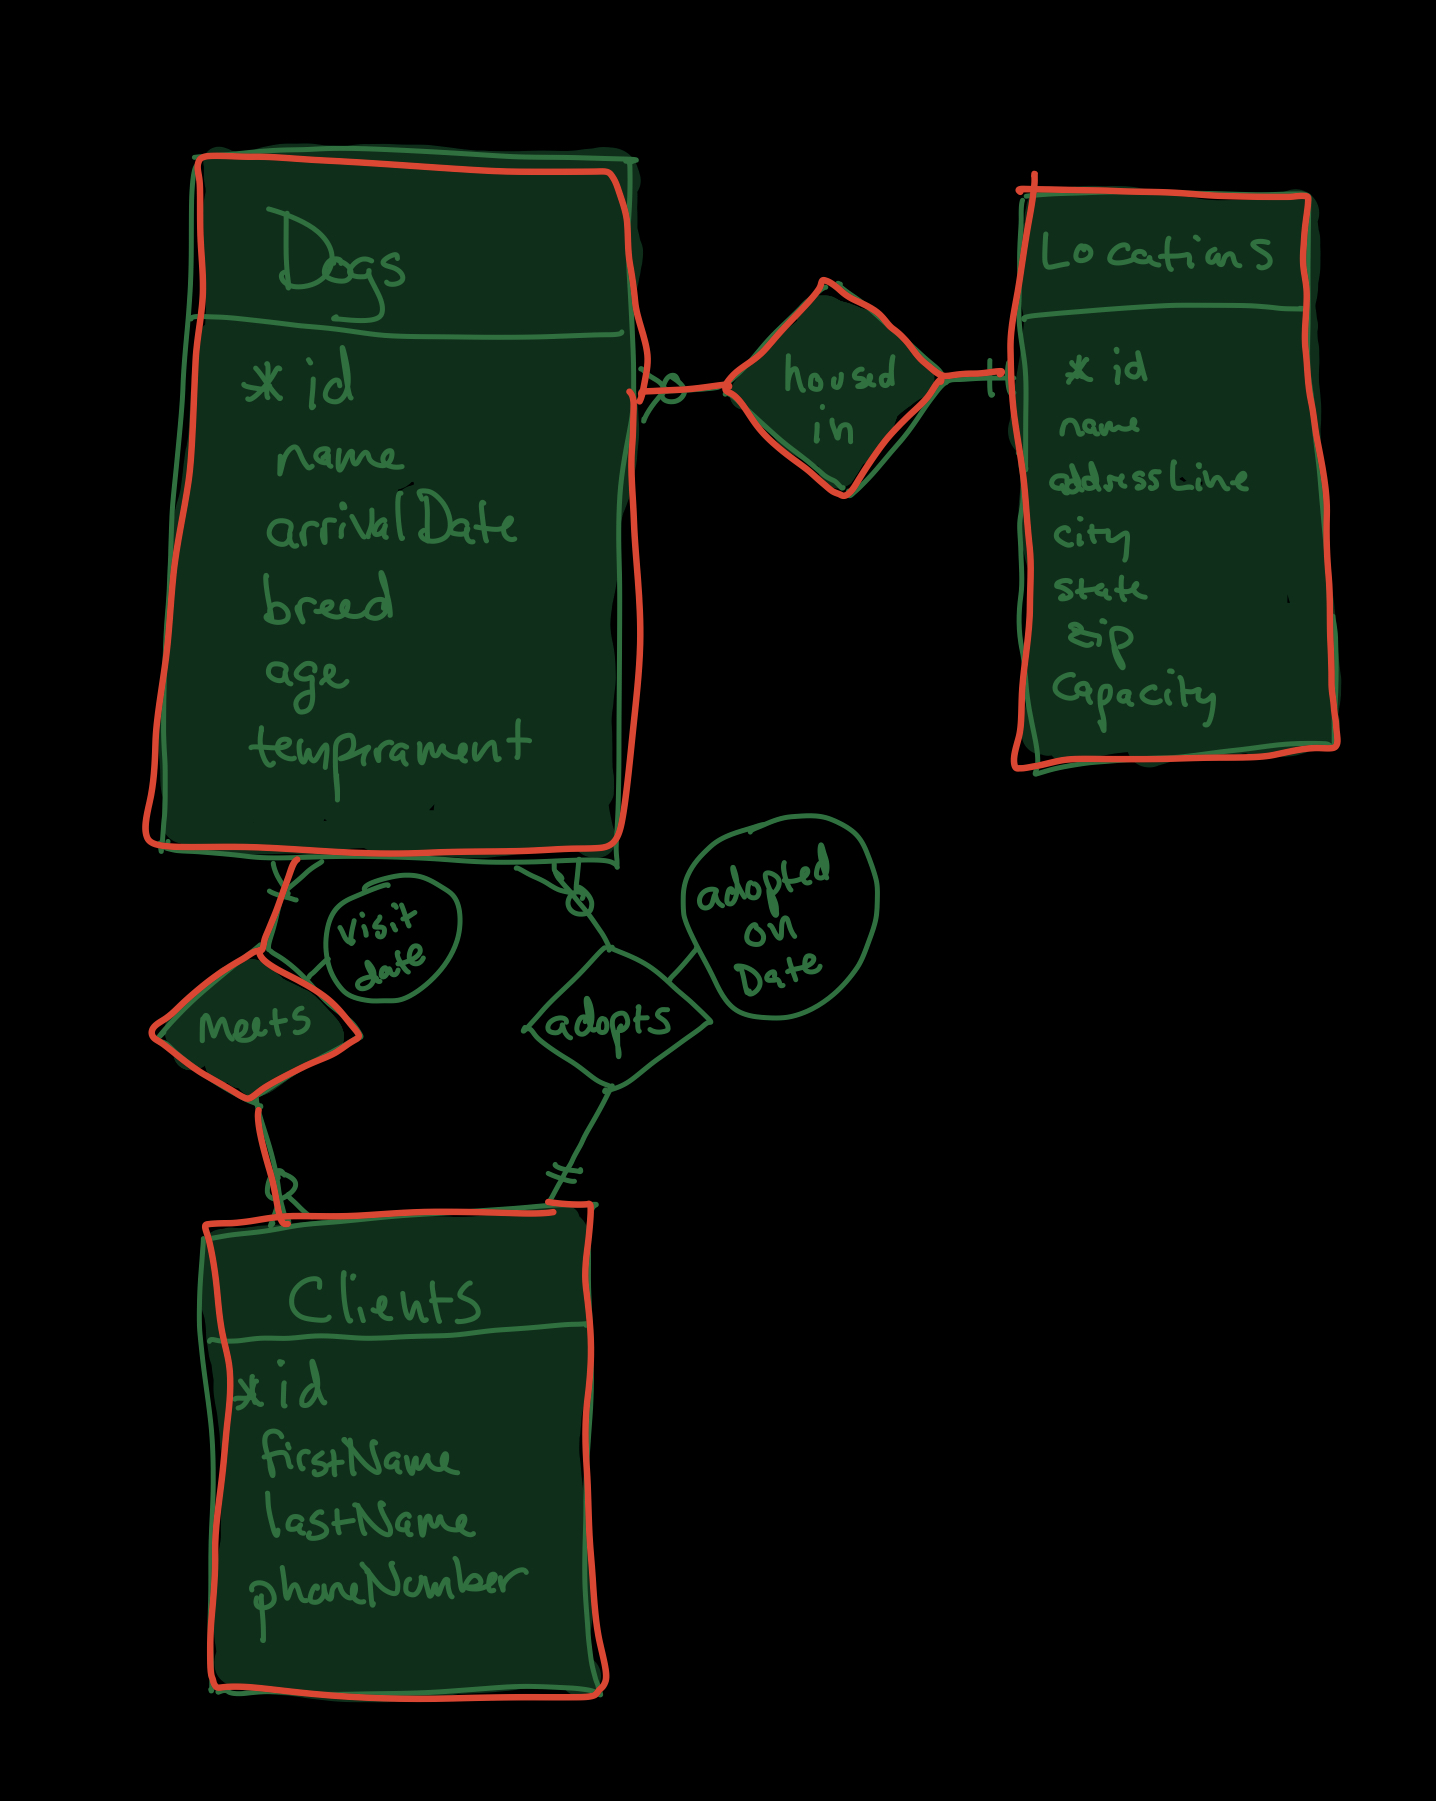 Dogs
*id
name
arrivalDate
breed
age
temprament
housed
in
Locations
*id
name
addressLine
city
state
zip
Capacity
visit
date
Meets
adopted
on
Date
adopts
Clients
*id
firstName
lastName
phoneNumber